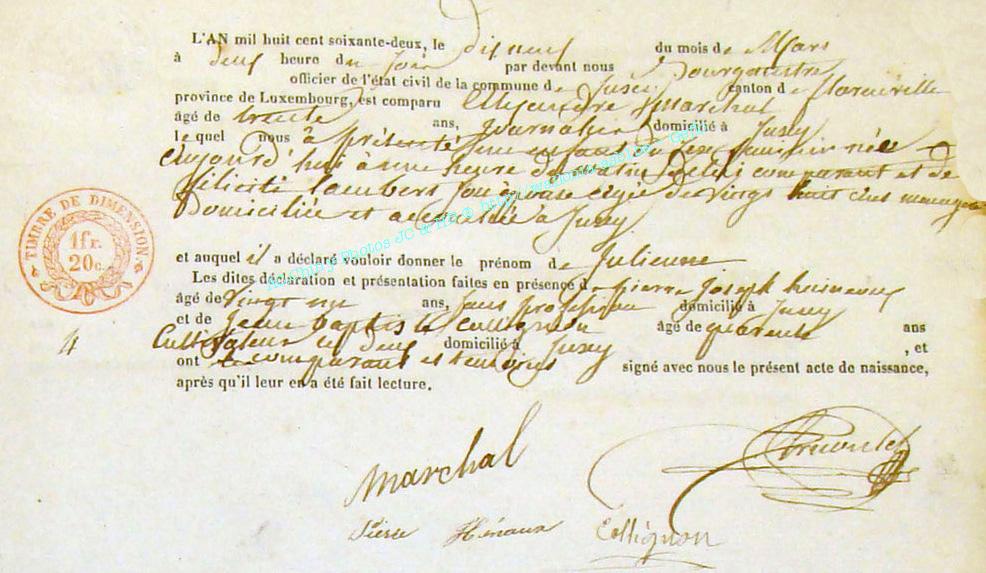 L'AN mil huit cent soixante-deux, le dix neuf du mois de Mars
à deux heure du soir par devant nous Bourgmestre
officier de l'état civil de la commune de canton de Florenville
province de Luxembourg, est comparu Alexandre Marchal
âgé de trente ans, Journalier domicilié à Jusey
lequel nous à présenté une enfant du sexe féminin née
aujourd'hui à une heure du matin de lui comparant et de
félicité Lambert son épouse agée de vingt huit ans ménagère
Domiciliée et à Jusey
et auquel il a déclaré vouloir donner le prénom de Julienne
Les dites déclaration et présentation faites en présence de pierre joseph
âgé de vingt un ans, sans profession domicilié à Jusey
et de Jean baptiste Collignon âgé de quarente ans
4 Cultivateur domicilié à Jusey , et
ont le comparant et temoins signé avec nous le présent acte de naissance,
après qu'il leur en a été fait lecture.
TIMBRE DE DIMENSION.
1 fr.
20 c.
Marchal
Pierre Hénaux Collignon